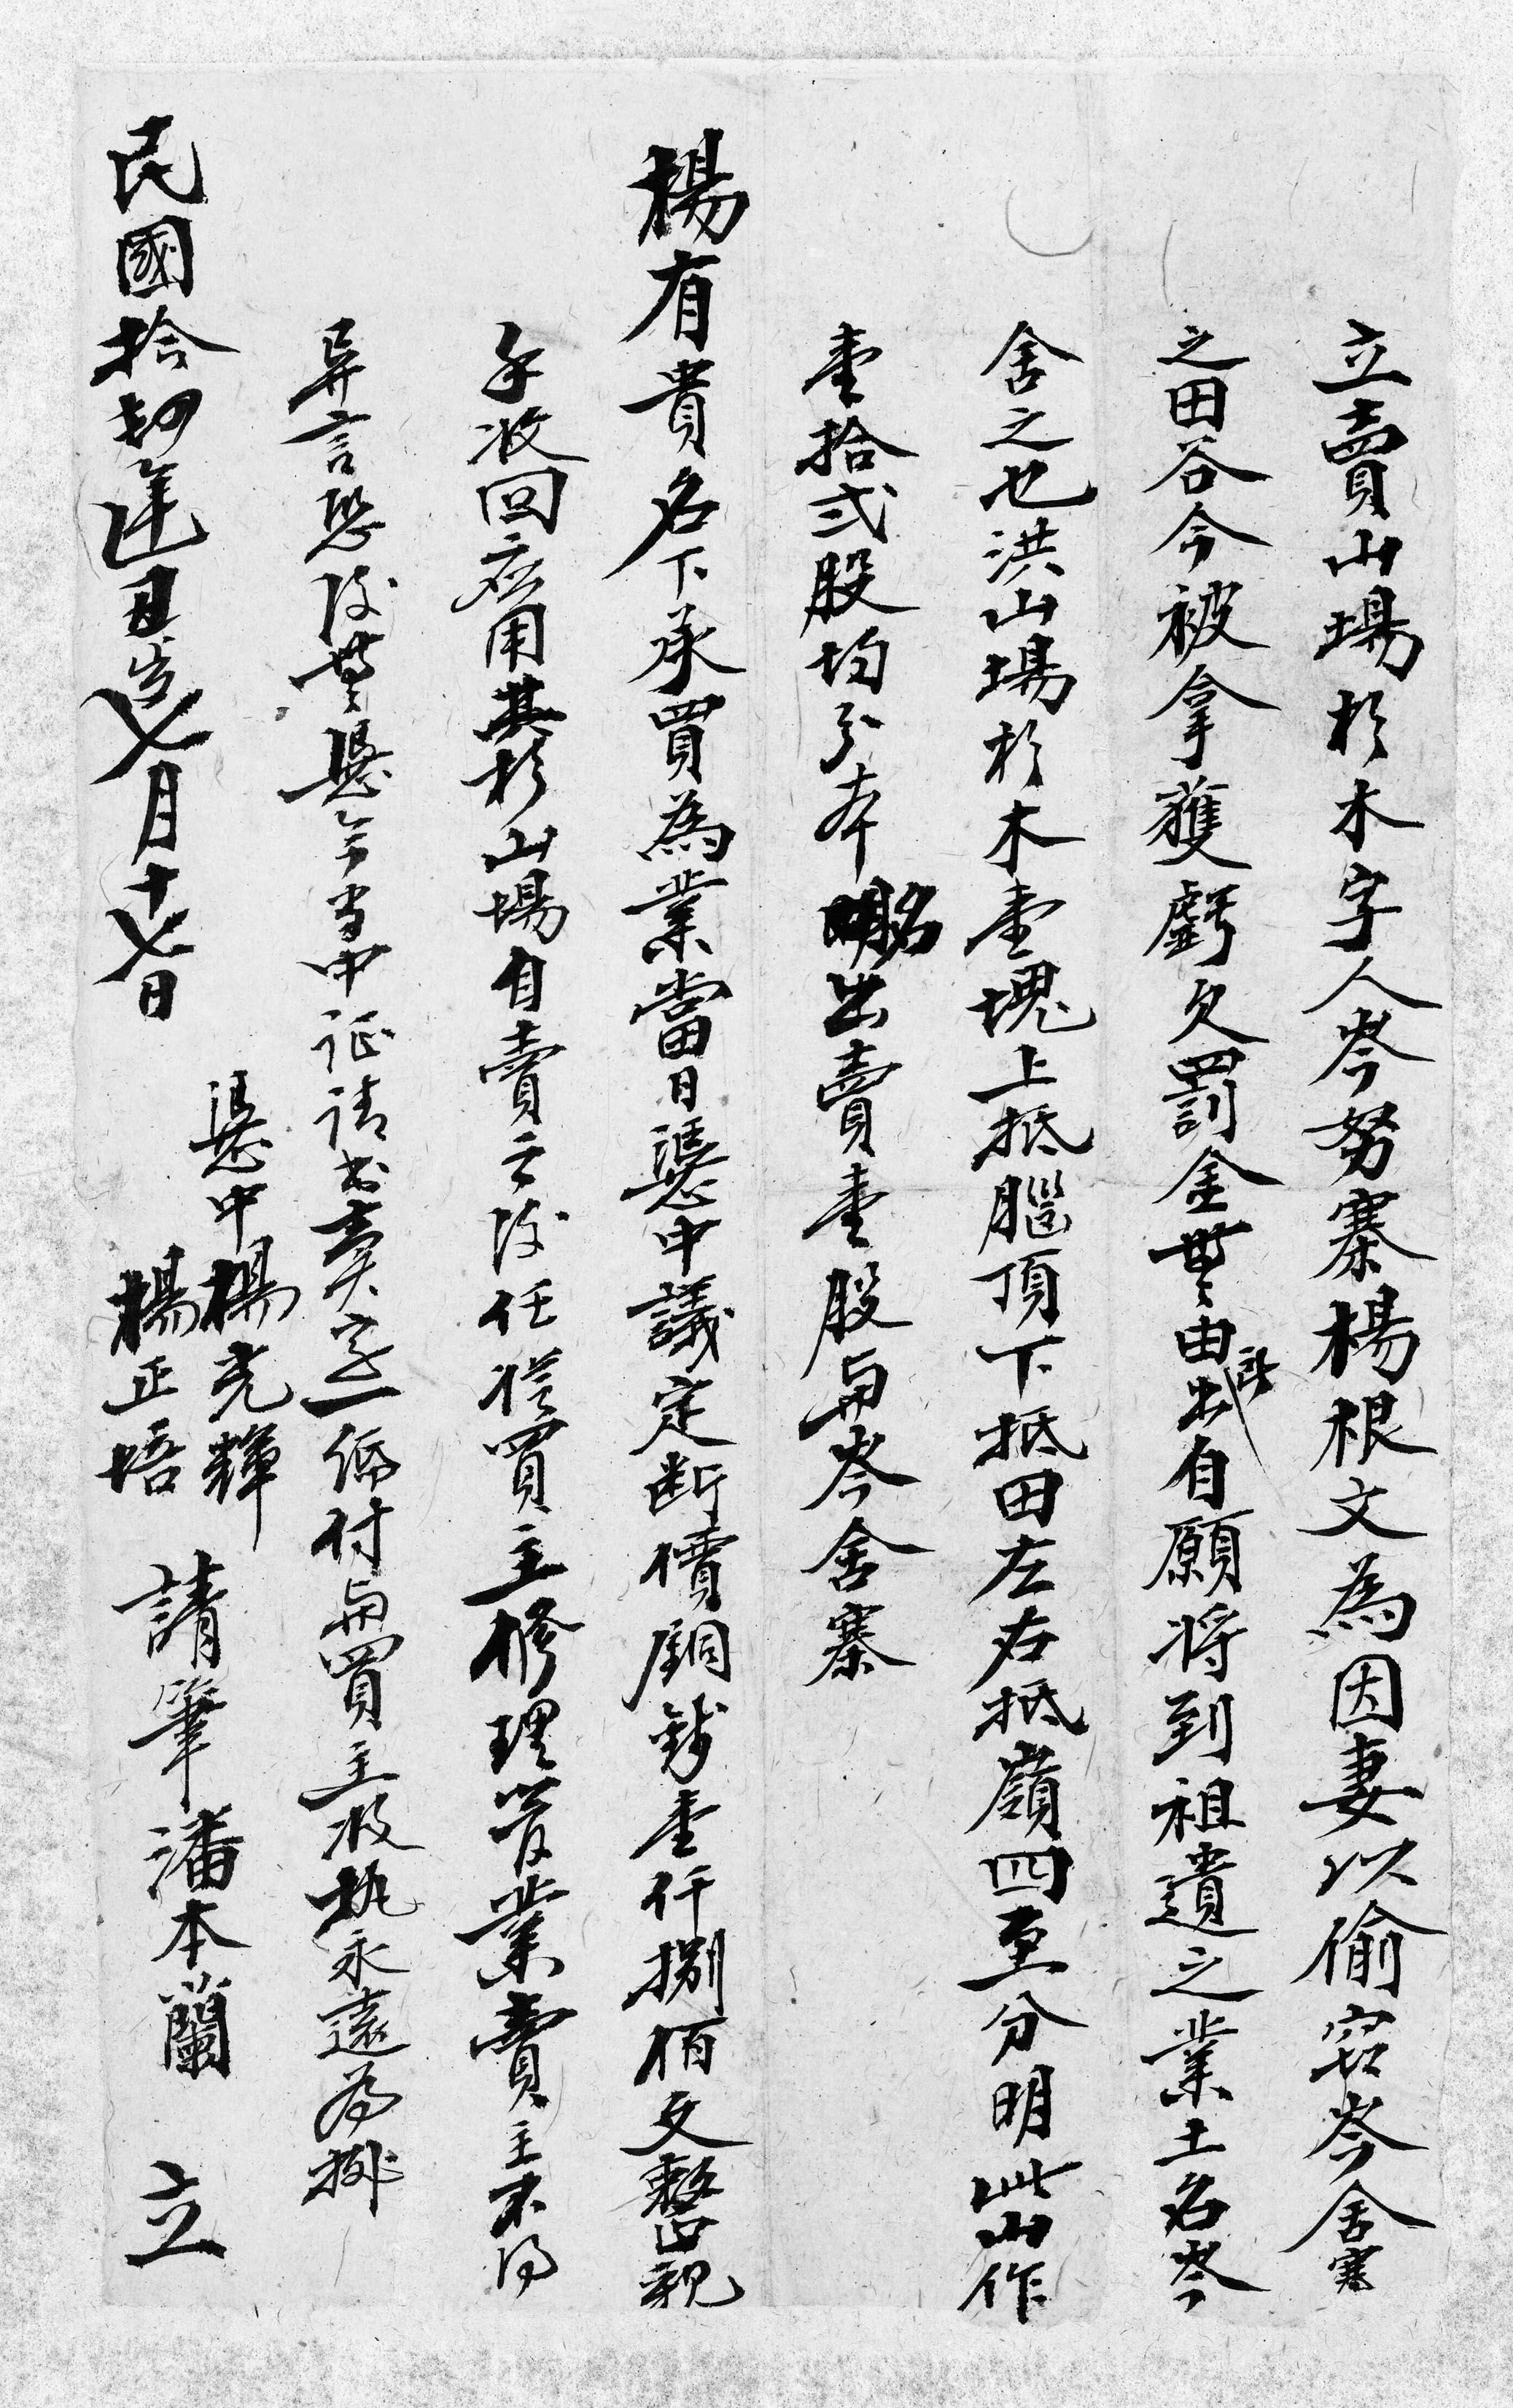 立賣山場杉木字人岑努寨楊根文為因妻以偷窃岑舍寨
之田谷今被拿獲虧欠罰金無由所出自願将到祖遺之業土名岑
舍之也洪山場杉木壹塊上抵腦頂下抵田左右抵嶺四至分明此山作
壹拾弍股均分本名出賣壹股与岑舍寨
楊有貴名下承買為業當日憑中議定断價銅錢壹仟捌佰文整親
手收回應用其杉山場自賣之後任從買主修理管業賣主不得
異言恐後無憑今当中证请书卖字一紙付与買主收执永遠為據
憑中楊光輝
楊正培
請筆潘本蘭 立
民國拾年 七月十七日